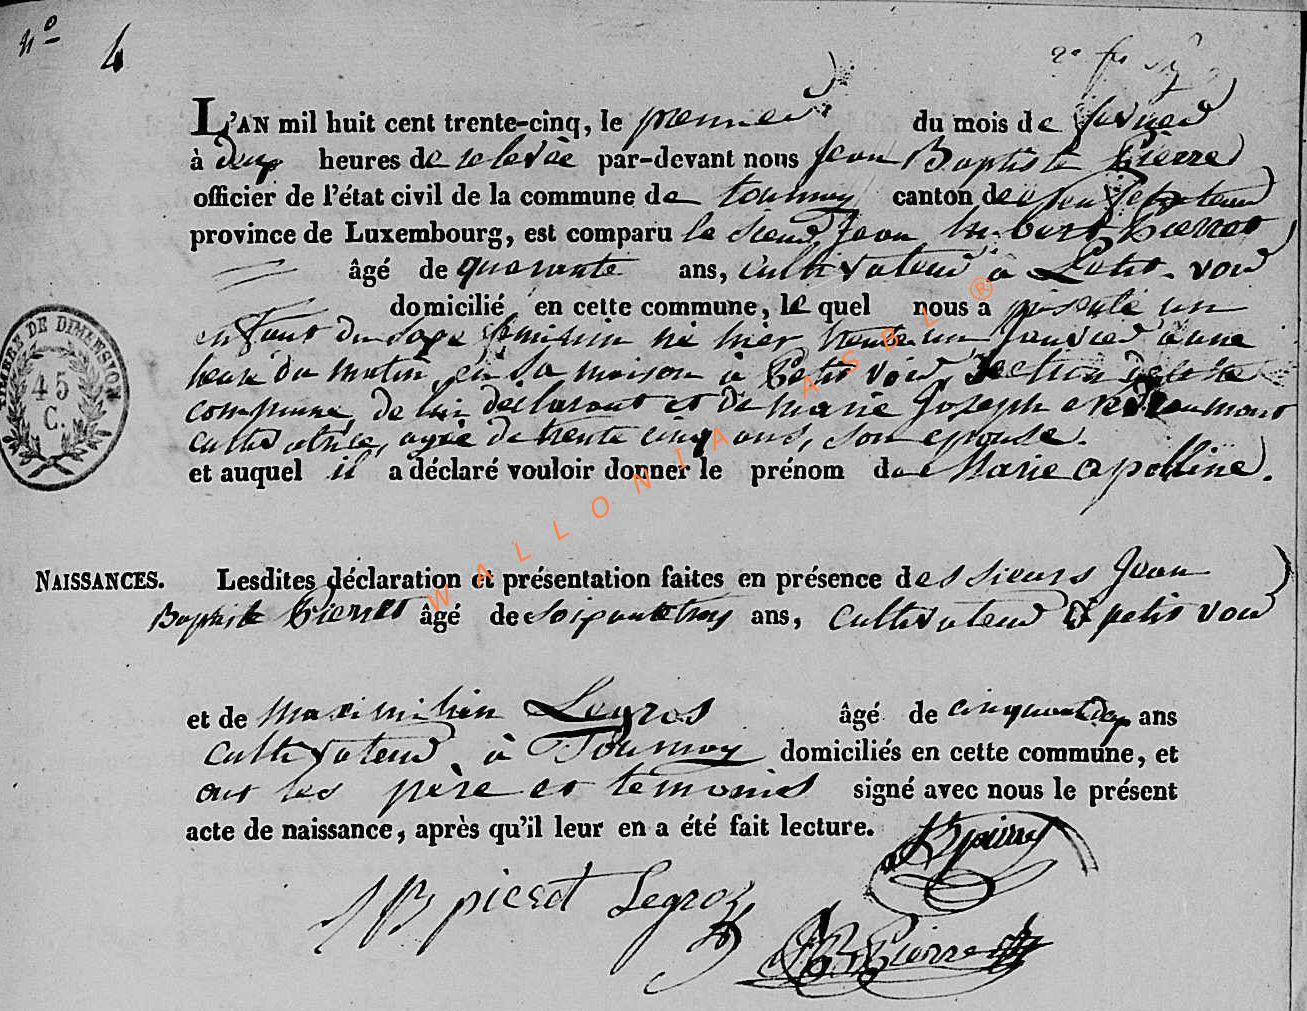 nº 4
L'AN mil huit cent trente-cinq, le premier du mois de fevrier
à deux heures de relevée par-devant nous Jean Baptiste Pierre
officier de l'état civil de la commune de tournay canton de neufchateau
province de Luxembourg, est comparu le sieur Jean hubert Pierret
âgé de quarante ans, cultivateur à Petit-voir
domicilié en cette commune, le quel nous a présenté un
enfant du sexe feminin né hier trente un Janvier à une
heure du matin, en sa maison à Petit voir Section de cette
commune de lui déclarant et de marie Joseph
cultivatrice, agée de trente cinq ans, son epouse.
et auquel il a déclaré vouloir donner le prénom de Marie apolline.
NAISSANCES. Lesdites déclaration et présentation faites en présence des sieurs Jean
Baptiste Pierret âgé de soixante trois ans, cultivateur à petit voir
et de maximilien Legros âgé de cinquante deux ans
cultivateur à Tournay domiciliés en cette commune, et
ont les père et temoins signé avec nous le présent
acte de naissance, après qu'il leur en a été fait lecture.
JB pieret Legros
JB Pierre
TIMBRE DE DIMENSION
45
C.
WALLONIA ASBL ®